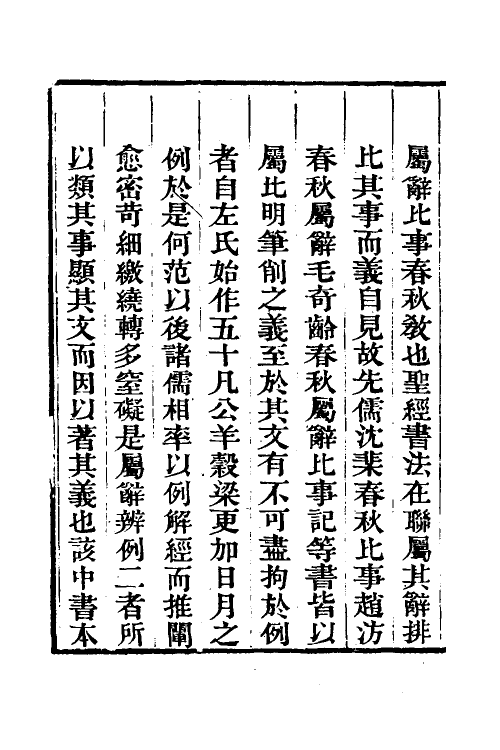 屬辭比事春秋敎也聖經書法在聯屬其辭排
比其事而義自見故先儒沈棐春秋比事趙汸
春秋屬辭毛奇齡春秋屬辭比事記等書皆以
屬比明筆削之義至於其文有不可盡拘於例
者自左氏始作五十凡公羊穀梁更加日月之
例於是何范以後諸儒相率以例解經而推闡
愈密苛細繳繞轉多窒礙是屬辭辨例二者所
以類其事顯其文而因以著其義也該中書本